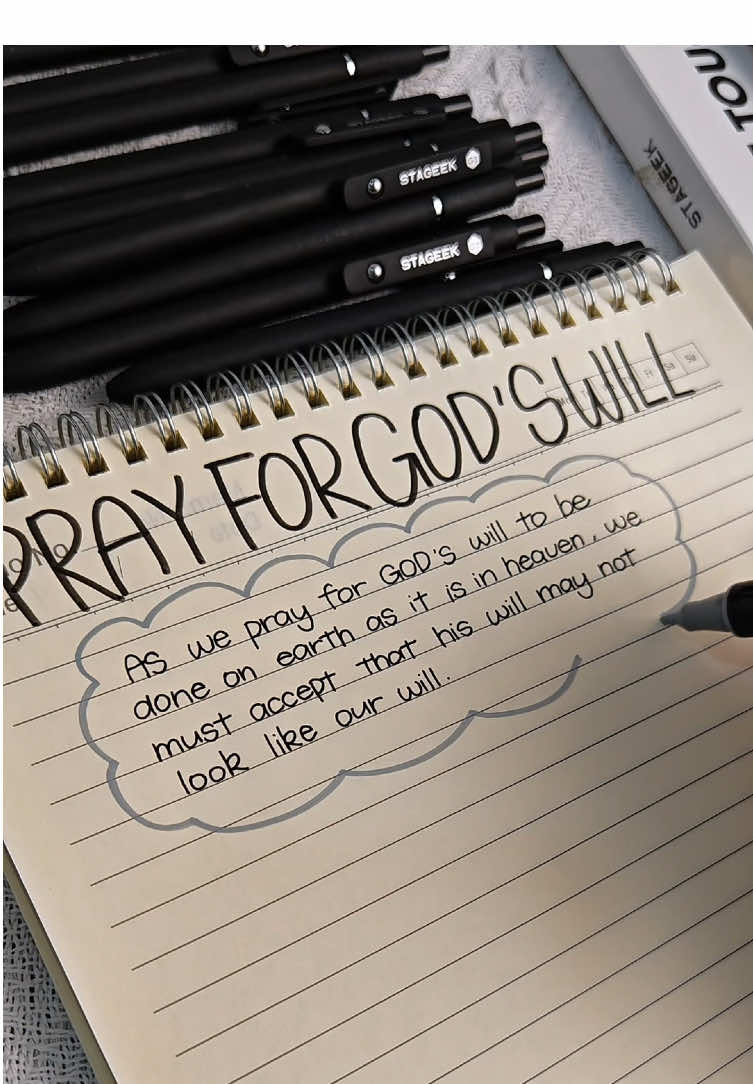 STAGEEK
STAGEEK
TOU
STAGEEK
Fr Sa Su
PRAY FOR GOD'S WILL
As we pray for GOD'S will to be
done on earth as it is in heaven, we
must accept that his will may not
look like our will.